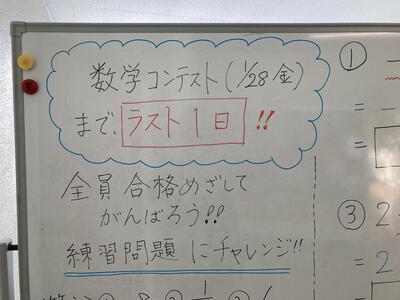 数学コンテスト(1/28金)
まで、ラスト1日!!
全員合格めざして
がんばろう!!
練習問題にチャレンジ!!
①
=
=
③ 2
= 2